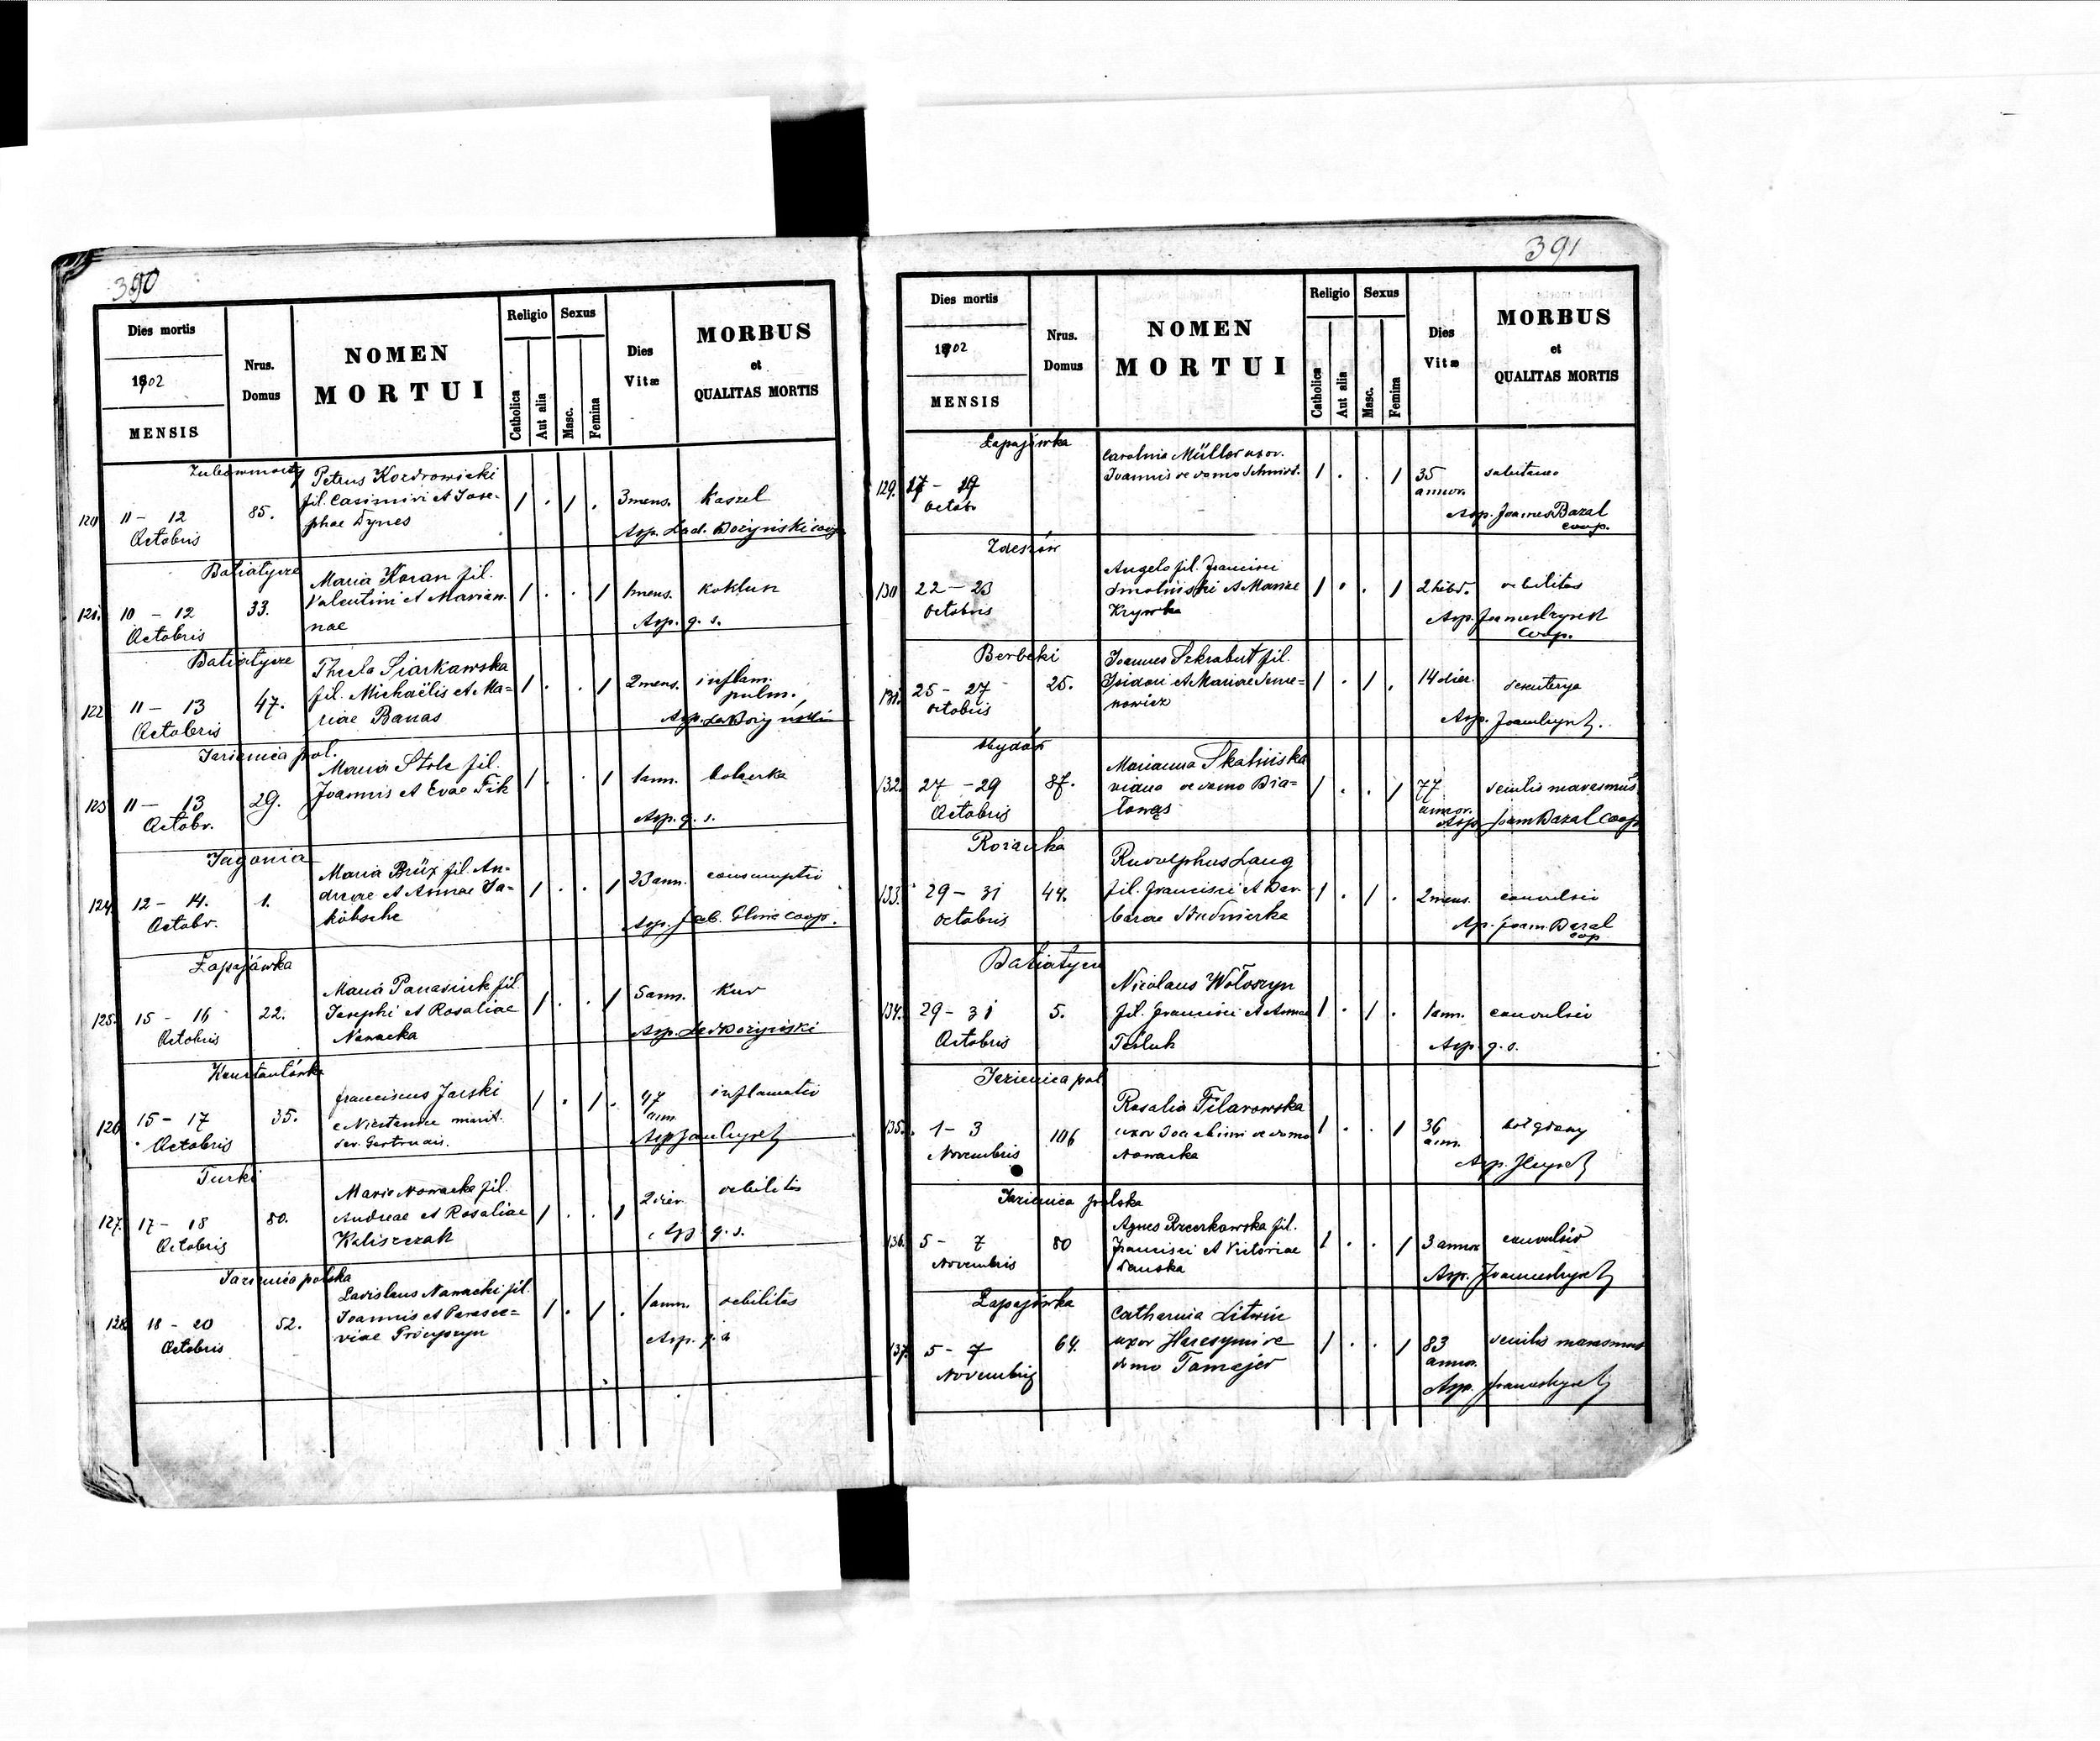 390
Dies mortis
1902
MENSIS
Nrus.
Domus
NOMEN
MORTUI
Religio
Catholica
Aut alia
Sexus
Masc.
Femina
Dies
Vitæ
MORBUS
et
QUALITAS MORTIS
Petrus Kozdrowicki
fil. Casimiri et Jose-
phae Dynes
120 11 — 12
Octobris
85.
1 . 1 .
3 mens. Kaszel
Asp. Lad. Bożyński coop
Batiatycze
Maria Koran fil.
Valentini et Marian-
nae
121. 10 — 12
Octobris
33.
1 . . 1
1 mens. koklun
Asp. q. s.
Batiatycze
Thecla Siarkawska
fil. Michaëlis et Ma=
riae Banas
122 11 — 13
Octobris
47.
1 . . 1
2 mens. inflam.
pulm.
Jazienica pol.
Maria Stolc fil.
Joannis et Evae Fik
123 11 — 13
Octobr.
29.
1 . . 1
1 ann.
Asp. q. s.
Jagonia
Maria Brüx fil. An-
dreae et Annae Ja-
kübsche
124 12 — 14.
Octobr.
1.
1 . . 1
23 ann. consumptio
Asp. Jac. Glinc coop.
Łapajówka
Maria Panasiuk fil.
Josephi et Rosaliae
Nawacka
125. 15 — 16
Octobris
22.
1 . . 1
5 ann. Kur
Asp. Lad Bożyński
Konstantówka
Franciscus Jarski
marit.
der. Gertrudis.
126 15 — 17
Octobris
35.
1 . 1 .
47
ann.
inflamatio
Turki
Maria Nowacka fil.
Andreae et Rosaliae
Kaliszczak
127. 17 — 18
Octobris
80.
1 . . 1
2 dier. debilitas
Asp. q. s.
Jazienica polska
Ladislaus Nawacki fil.
Joannis et Parasce=
viae Prócyszyn
128. 18 — 20
Octobris
52.
1 . 1 .
1 ann. debilitas
Asp. q. s
391
Dies mortis
1902
MENSIS
Nrus.
Domus
NOMEN
MORTUI
Religio
Catholica
Aut alia
Sexus
Masc.
Femina
Dies
Vitæ
MORBUS
et
QUALITAS MORTIS
Łapajówka
Carolina Müller uxor.
Joannis de domo Schmidt.
129. 17 — 19
Octobr
1 . . 1
35
annor.
Asp. Joannes Bazal
coop.
Zdeszów
Angela fil. Francisci
Smoliński et Mariae
Krywka
130 22 — 23
Octobris
1 . . 1
2 hebd. debilitas
coop.
Berbeki
Joannes Szkrabut fil.
Isidori et Mariae Seme=
nowicz
131. 25 — 27
Octobris
25.
1 . 1 .
14 dier. desenterya
Marianna Skalniska
vidua de domo Bia=
łowąs
132. 27 — 29
Octobris
87.
1 . . 1
77
annor.
senilis marasmus
Asp Joam Bazal coop
Rozanka
Rudolphus Laug
fil. Francisci et Bar-
barae Studnierka
133. 29 — 31
Octobris
44.
1 . 1 .
2 mens. convulsio
Asp. Joam. Bazal
coop
Batiatycze
Nicolaus Wołoszyn
fil. Francisci et Annae
Tesluk
134. 29 — 31
Octobris
5.
1 . 1 .
1 ann. convulsio
Asp. q. s.
Jazienica pol
Rosalia Filarowska
uxor Joachimi de domo
Nowacka
135. 1 — 3
Novembris
106
1 . . 1
36
ann.
Jazienica polska
Agnes Pzcerkowska fil.
Francisci et Victoriae
Danska
136. 5 — 7
Novembris
80
1 . . 1
3 annor convulsio
Łapajówka
Catharina Litwin
uxor Hieresymi de
domo Tomajer
137. 5 — 7
Novembris
64.
1 . . 1
83
annor.
senilis marasmus